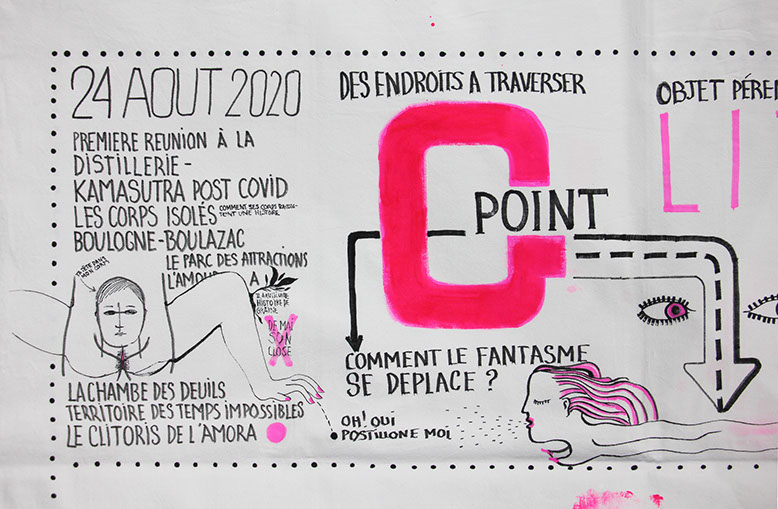 24 AOUT 2020
PREMIERE REUNION À LA
DISTILLERIE -
KAMASUTRA POST COVID
LES CORPS ISOLÉS
BOULOGNE-BOULAZAC
LE PARC DES ATTRACTIONS
L'AMOU
A
HISTOIRE DE
DE MAI
SON
CLOSE
LA CHAMBE DES DEUILS
TERRITOIRE DES TEMPS IMPOSSIBLES
LE CLITORIS DE L'AMORA
DES ENDROITS A TRAVERSER
C
POINT
COMMENT LE FANTASME
SE DEPLACE ?
OH! OUI
POSTILLONE MOI
OBJET PÉREN
LI